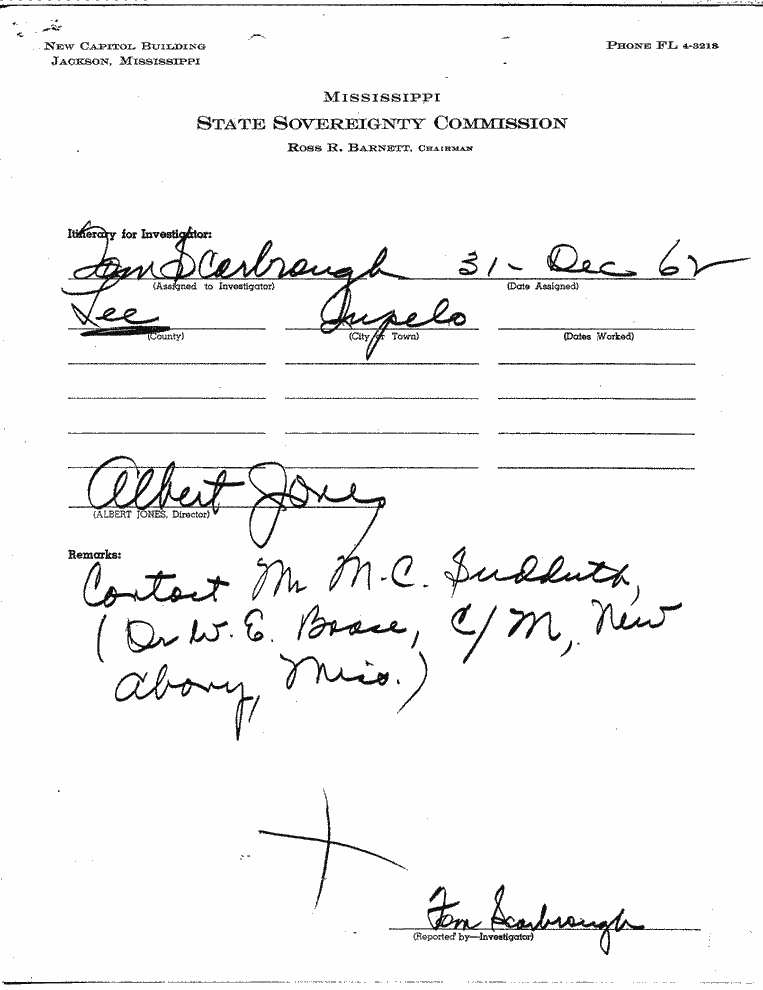 NEW CAPITOL BUILDING
JACKSON, MISSISSIPPI
PHONE FL 4-3218
MISSISSIPPI
STATE SOVEREIGNTY COMMISSION
ROSS R. BARNETT, CHAIRMAN
Itinerary for Investigator:
Tom Scarbrough 31 - Dec 62
(Assigned to Investigator) (Date Assigned)
Lee Tupelo
(County) (City or Town) (Dates Worked)
Albert Jones
(ALBERT JONES, Director)
Remarks:
Contact Mr M.C. Sudduth,
(Dr W. E. Boase, C/M, New
Albany, Miss.)
Tom Scarbrough
(Reported by—Investigator)